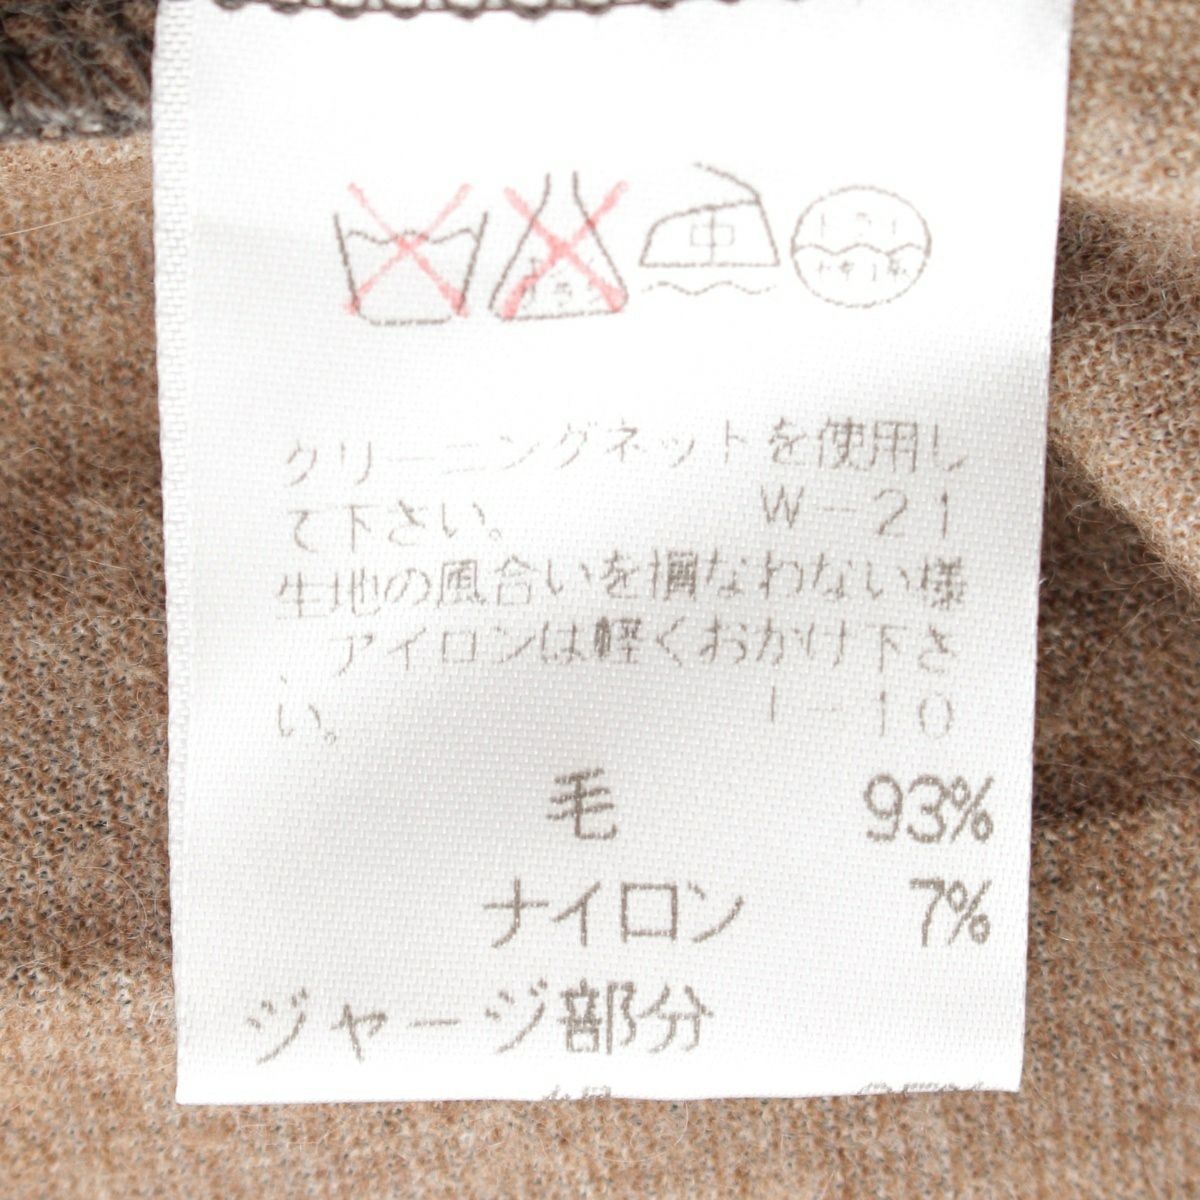 中
ドライ
セキユ系
クリーニングネットを使用し
て下さい。 W-21
生地の風合いを損なわない様
アイロンは軽くおかけ下さ
い。 I-10
毛 93%
ナイロン 7%
ジャージ部分